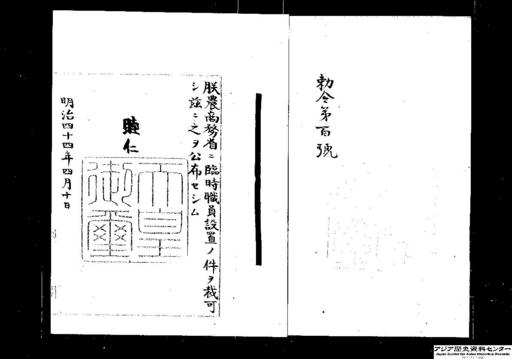 勅令第百號
朕農商務省ニ臨時職員設置ノ件ヲ裁可
シ茲ニ之ヲ公布セシム
睦仁
天皇
御璽
明治四十四年四月十日
アジア歴史資料センター
Japan Center for Asian Historical Records